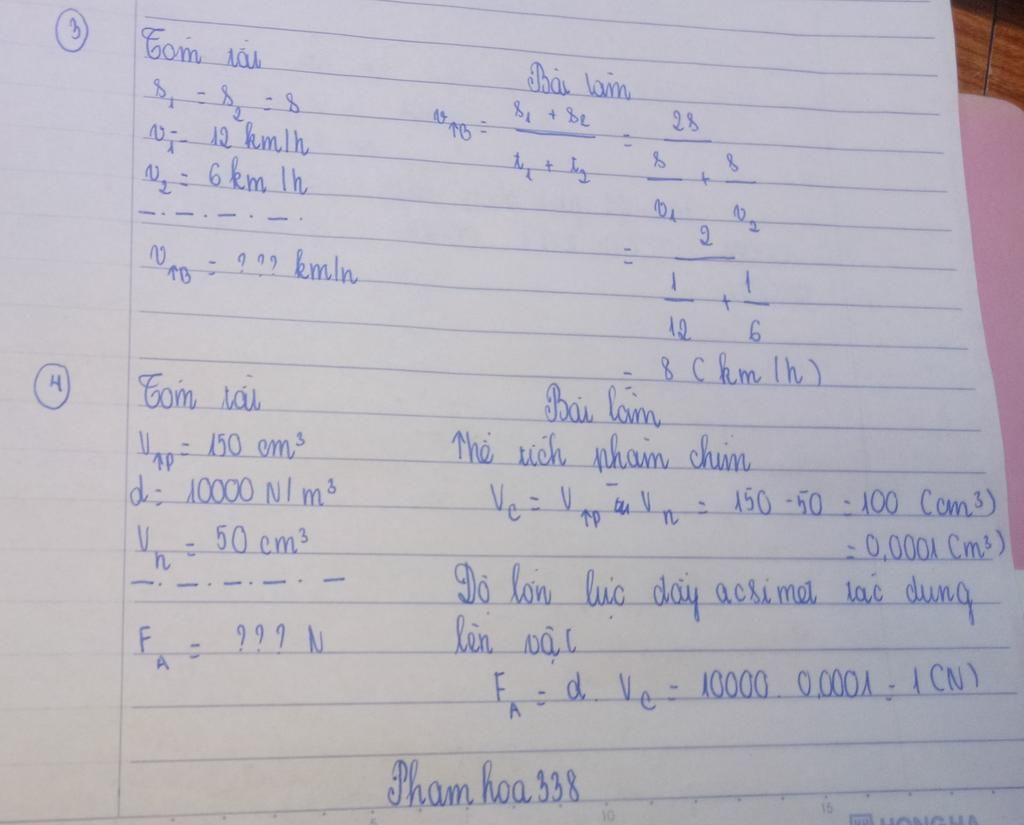 3
Tóm tắt
s₁ = s₂ = s
v₁ = 12 km/h
v₂ = 6 km/h
v_TB = ??? km/h
Bài làm
v_TB = (s₁ + s₂)/(t₁ + t₂) = 2s/(s/v₁ + s/v₂)
= 2/(1/12 + 1/6)
= 8 (km/h)
4
Tóm tắt
V_TP = 150 cm³
d = 10000 N/m³
V_n = 50 cm³
F_A = ??? N
Bài làm
Thể tích phần chìm
V_C = V_TP - V_n = 150 - 50 = 100 (cm³)
= 0,0001 (m³)
Độ lớn lực đẩy acsimet tác dụng
lên vật
F_A = d. V_C = 10000. 0,0001 = 1 (N)
Phamhoa338
5 10 15
HONG HA